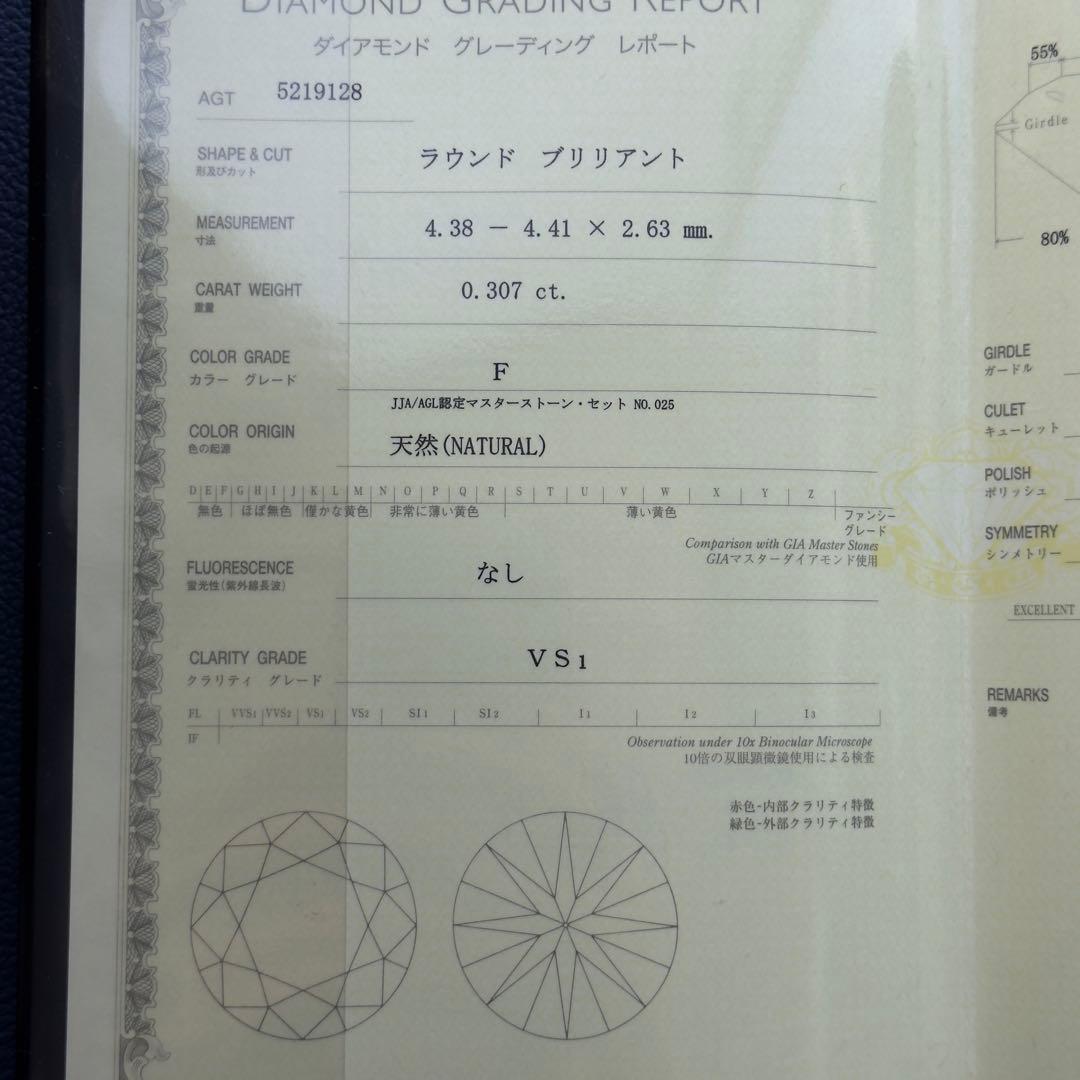 DIAMOND GRADING REPORT
ダイアモンド グレーディング レポート
AGT 5219128
SHAPE & CUT ラウンド ブリリアント
形及びカット
MEASUREMENT 4.38 － 4.41 × 2.63 mm.
寸法
CARAT WEIGHT 0.307 ct.
重量
COLOR GRADE F
カラー グレード
JJA/AGL認定マスターストーン・セット NO.025
COLOR ORIGIN 天然(NATURAL)
色の起源
D E F G H I J K L M N O P Q R S T U V W X Y Z
無色 ほぼ無色 僅かな黄色 非常に薄い黄色 薄い黄色 ファンシー
グレード
Comparison with GIA Master Stones
GIAマスターダイアモンド使用
FLUORESCENCE なし
蛍光性(紫外線長波)
CLARITY GRADE VS1
クラリティ グレード
FL VVS1 VVS2 VS1 VS2 SI1 SI2 I1 I2 I3
IF
Observation under 10x Binocular Microscope
10倍の双眼顕微鏡使用による検査
赤色-内部クラリティ特徴
緑色-外部クラリティ特徴
55%
Girdle
80%
GIRDLE
ガードル
CULET
キューレット
POLISH
ポリッシュ
SYMMETRY
シンメトリー
EXCELLENT
REMARKS
備考